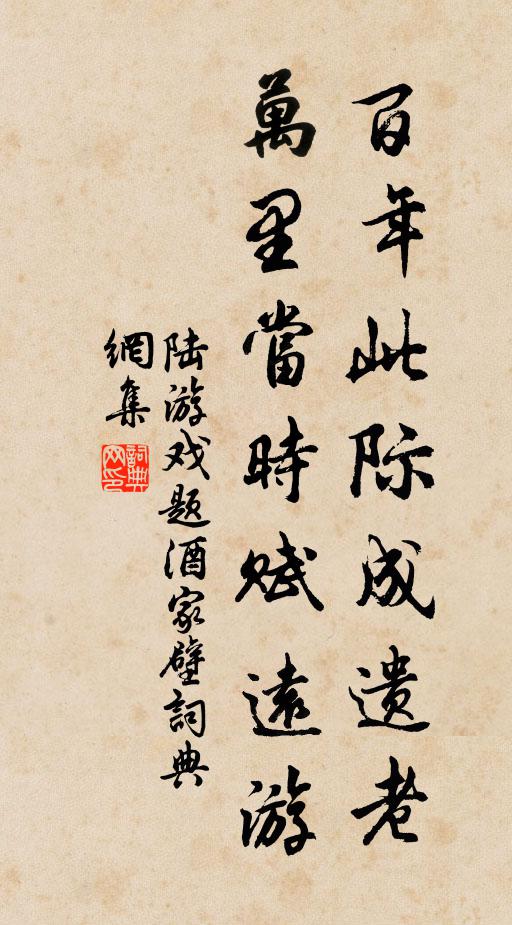 百年此际成遗老
萬里當時赋遠游
陆游戏题酒家壁詞典
網集
詞典
网印